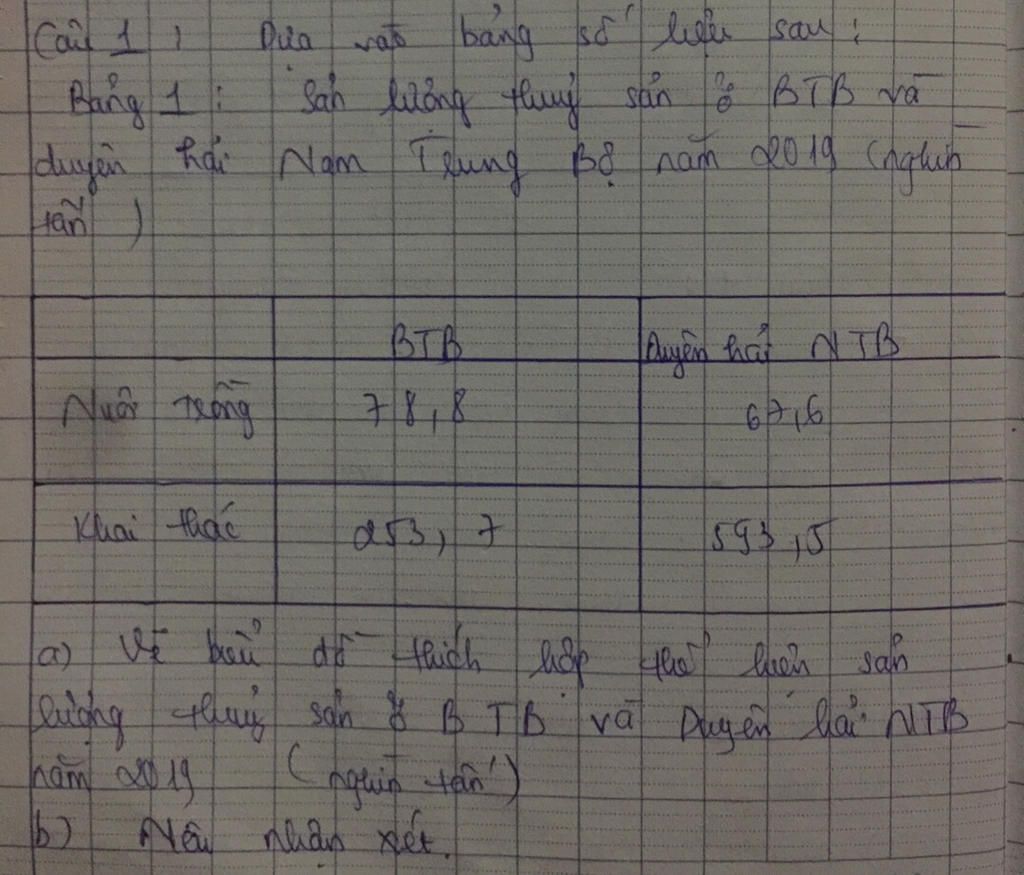 Câu 1 : Dựa vào bảng số liệu sau :
Bảng 1 : Sản lượng thuỷ sản ở BTB và
duyên hải Nam Trung Bộ năm 2019 (nghìn
tấn)
BTB Duyên hải NTB
Nuôi trồng 78,8 67,6
Khai thác 253,7 593,5
a) Vẽ biểu đồ thích hợp thể hiện sản
lượng thuỷ sản ở BTB và Duyên hải NTB
năm 2019 (nghìn tấn)
b) Nêu nhận xét.